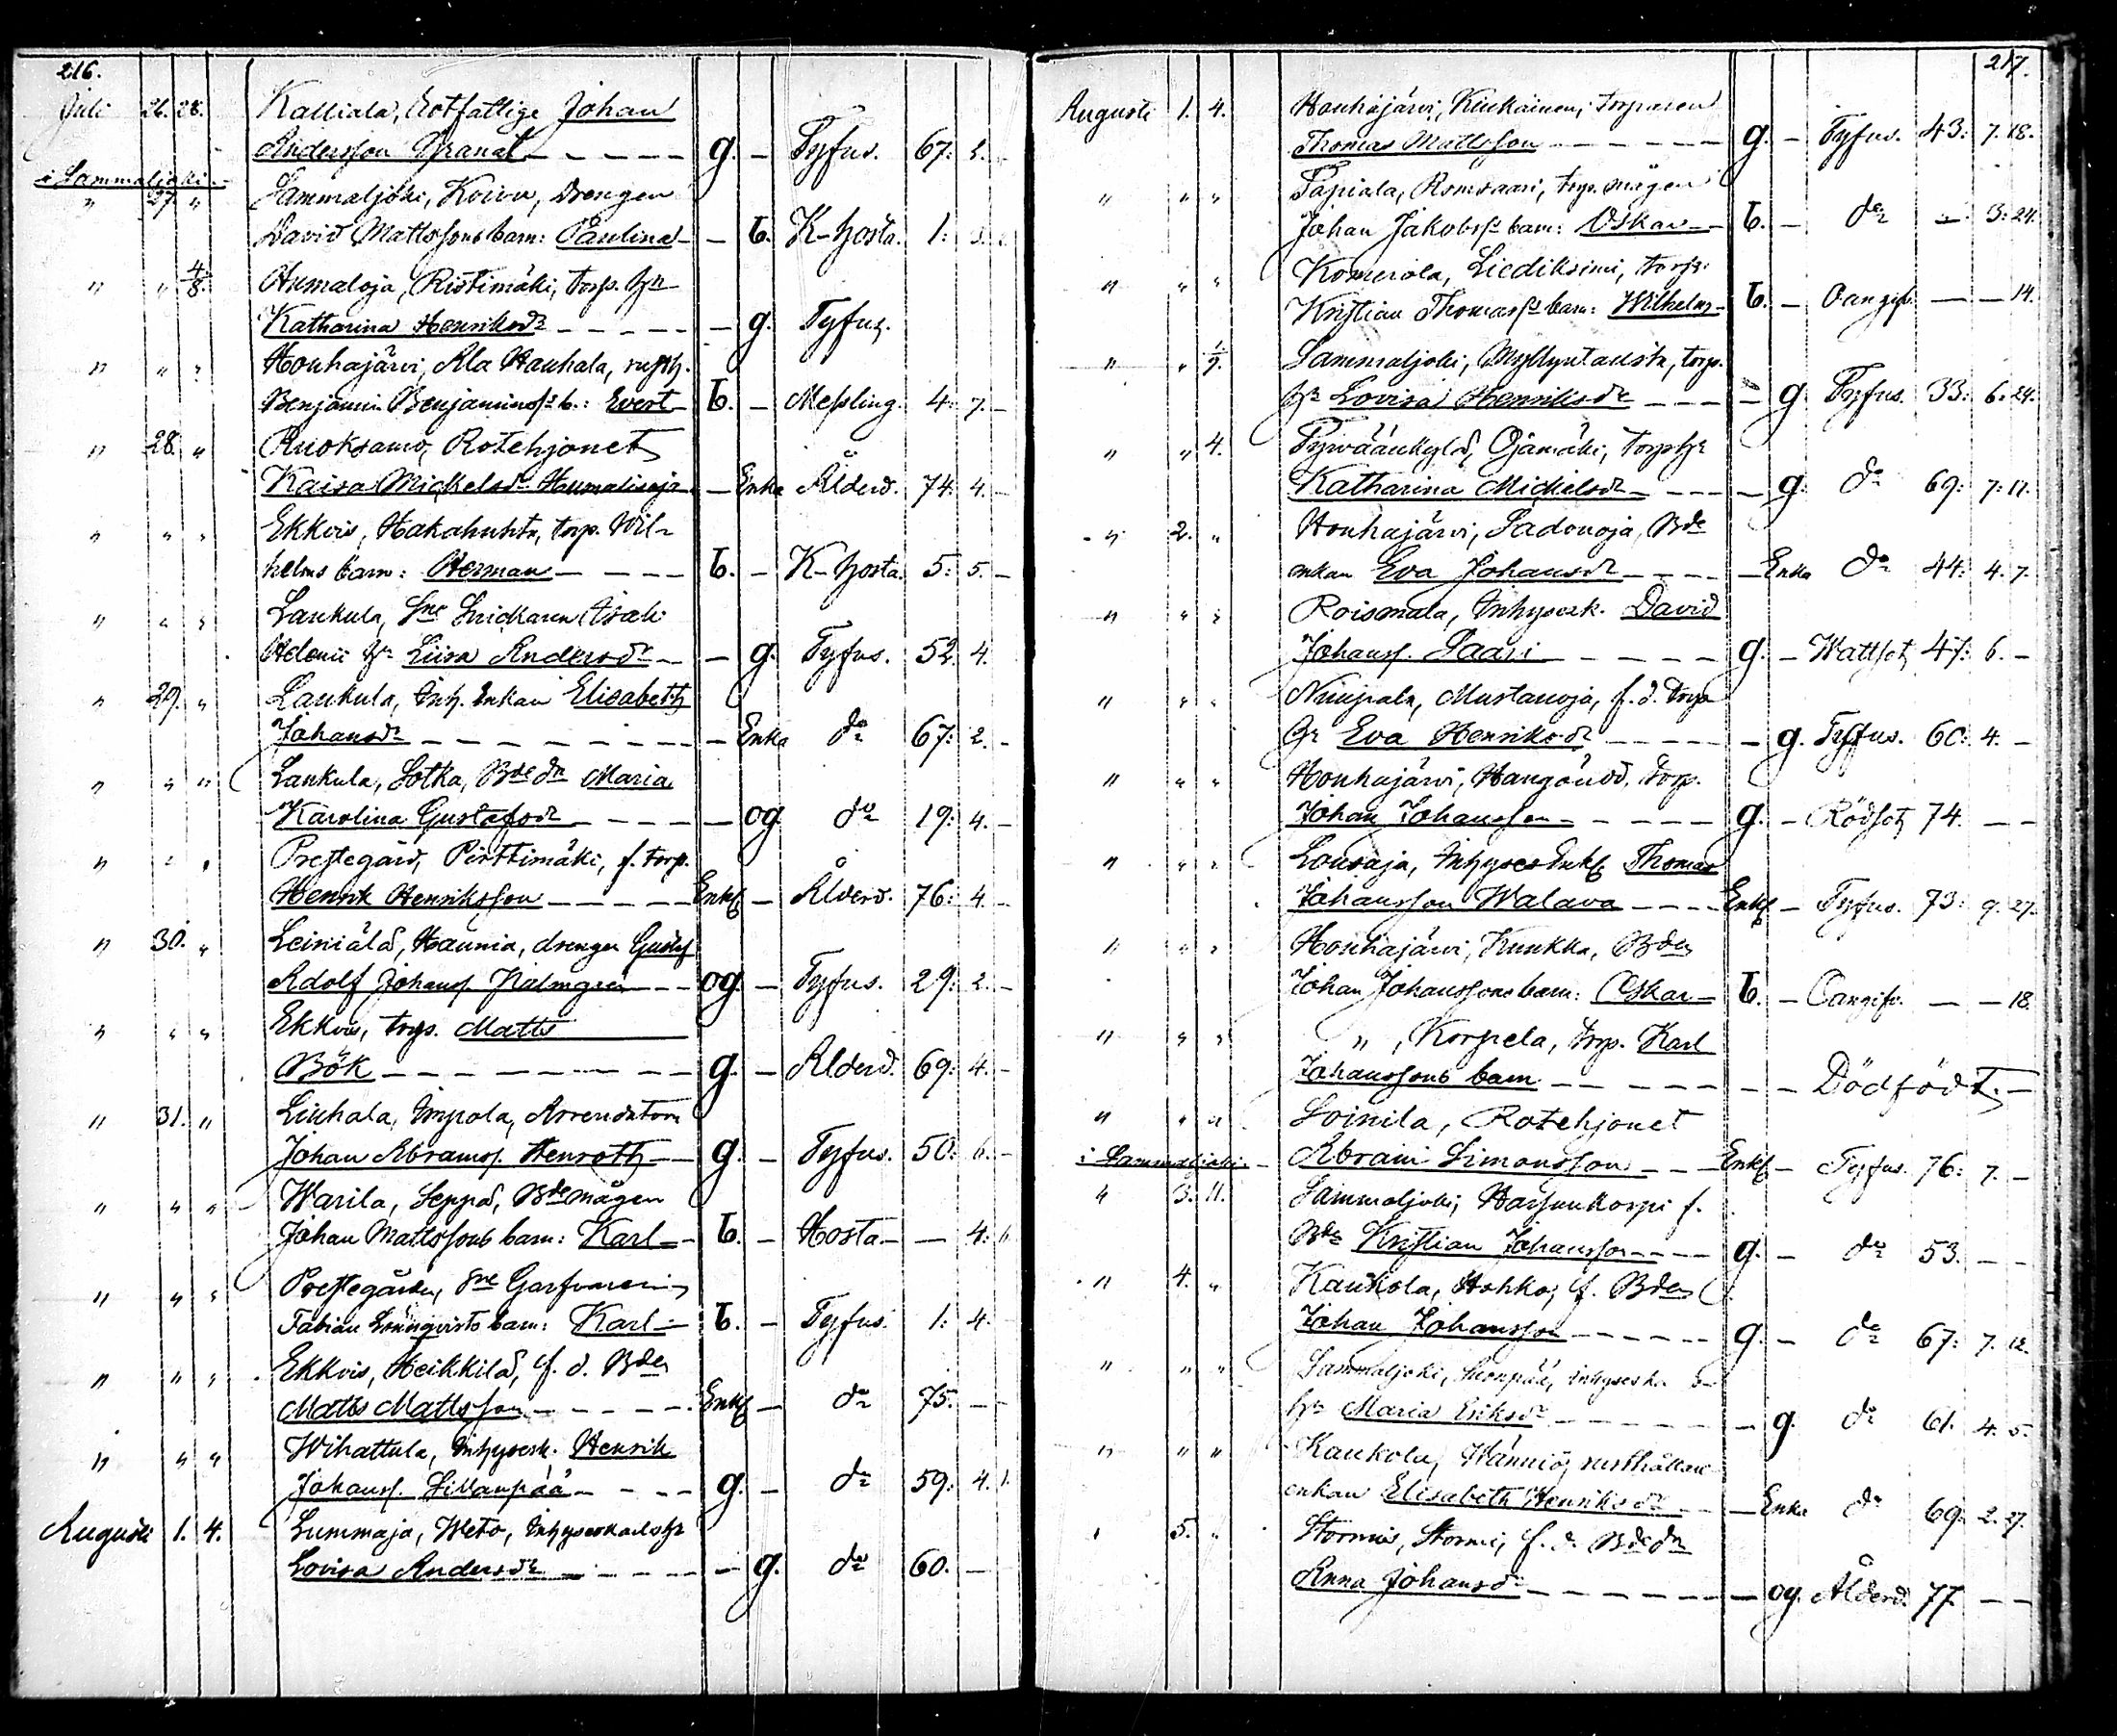 216.
Juli 26. 28. Kalliala, Rotfattige Johan
Andersson Granat g. Tyfus. 67: 2.
i Sammaljoki
" 27 " Sammaljoki, Koivu, Drengen
David Mattssons barn: Paulina b. K-hosta. 1:
" " 4/8. Humaloja, Ristimäki, torp. hu
Katharina Henriksdr g. Tyfus.
" " " Houhajärvi, Ala Hauhala, rusth.
Benjamin Benjaminss b.: Evert b. Messling. 4: 7.
" 28. " Ruoksamo, Rotehjonet
Kaisa Mickelsdr Humalisoja Enka Ålderd. 74: 4.
" " " Ekkvis, Hakahuhta, torp. Wil-
helms barn: Herman b. K-hosta. 5: 5.
" " " Laukula, Sne Snickaren Isak
Adenii hu Liisa Andersdr g. Tyfus. 52. 4.
" 29. " Laukula, Inh. Enkan Elisabeth
Johansdr Enka do 67: 2.
" " " Laukula, Sotka, Bde dr Maria
Karolina Gustafsdr og do 19: 4.
" " " Prestegård, Pirttimäki, f. torp.
Henrik Henriksson Enkl Ålderd. 76: 4.
" 30. " Leiniälä, Haunia, drengen Gustaf
Adolf Johanss. Palmgren og Tyfus. 29: 2.
" " " Ekkvis, torp. Matts
Bök g. Ålderd. 69: 4.
" 31. " Liuhala, Impola, Arrendatorn
Johan Abramss. Henroth g. Tyfus. 50: 6.
" " " Warila, Seppä, Bde mågen
Johan Mattssons barn: Karl b. Hosta 4.
" " " Prestegården, Sne Garfvaren
Fabian Lönnqvists barn: Karl b. Tyfus. 1: 4.
" " " Ekkvis, Heikkilä, f. d. Bden
Matts Mattsson Enkl do 75.
" " " Wihattula, Inhysesk. Henrik
Johanss. Sillanpää g. do 59: 4.
Augusti 1. 4. Lummaja, Weto, Inhyseskarls hu
Lovisa Andersdr g. do 60.
217.
Augusti 1. 4. Houhajärvi, Kiukainen, torparen
Thomas Mattsson g. Tyfus. 43: 7. 18.
" " " Tapiala, Romsaari, torp. mågen
Johan Jakobss barn: Oskar b. do 3: 24.
" " " Komerola, Liediksimi, torp.
Kristian Thomass barn: Wilhelm b. Oangif. 14.
" " 1/9. Sammaljoki, Myllyntausta, torp.
hu Lovisa Henriksdr g. Tyfus. 33: 6. 24.
" " 4. Tyrväänkylä, Ojamäki, torps hu
Katharina Mickelsdr g. do 69: 7: 17.
" 2. " Houhajärvi, Sadonoja, Bde
enkan Eva Johansdr Enka do 44: 4. 7.
" " " Roismala, Inhysesk. David
Johanss. Saari g. Wattsot 47: 6.
" " " Nuupala, Mustanoja, f. d. torp
hu Eva Henriksdr g. Tyfus. 60: 4.
" " " Houhajärvi, Hangänoja, torp.
Johan Johansson g. Rödsot 74.
" " " Lousaja, Inhyses Enkl Thomas
Johansson Walava Enkl Tyfus. 73: 9. 27.
" " " Houhajärvi, Kuukka, Bden
Johan Johanssons barn: Oskar b. Oangifv. 18.
" " " " , Korpela, torp. Karl
Johanssons barn Dödfödt.
" " " Soinila, Rotehjonet
i Sammaljoki Abram Simonsson Enkl Tyfus. 76: 7.
" 3. 11. Sammaljoki, Harjunkorpi f.
Bde Kristian Johansson g. do 53.
" 4. " Kaukola, Hohko, f. Bden
Johan Johansson g. do 67: 7. 12.
" " " Sammaljoki, Suonpää, Inhyseska
hu Maria Eriksdr g. do 61. 4. 5.
" " " Kaukola, Wänniö, rusthållare
enkan Elisabeth Henriksdr Enka do 69. 2. 27.
" 5. " Stormis, Stormi, f. d. Bde dr
Anna Johansdr og. Ålderd. 77.